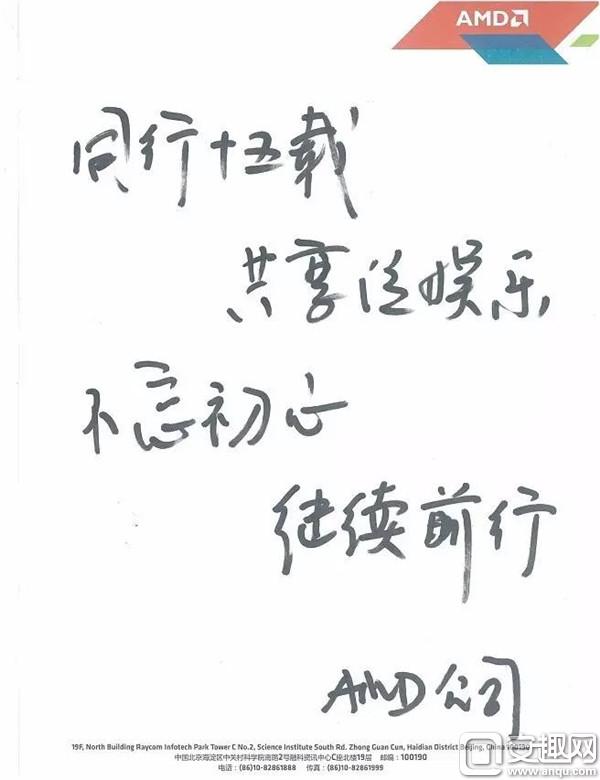 AMD
同行十五载
共享泛娱乐
不忘初心
继续前行
AMD公司
19F, North Building Raycom Infotech Park Tower C No.2, Science Institute South Rd. Zhong Guan Cun, Haidian District Beijing, China 100190
中国北京海淀区中关村科学院南路2号融科资讯中心C座北楼19层 邮编：100190
电话：(86)10-82861888 传真：(86)10-82861999
安趣网
www.anqu.com